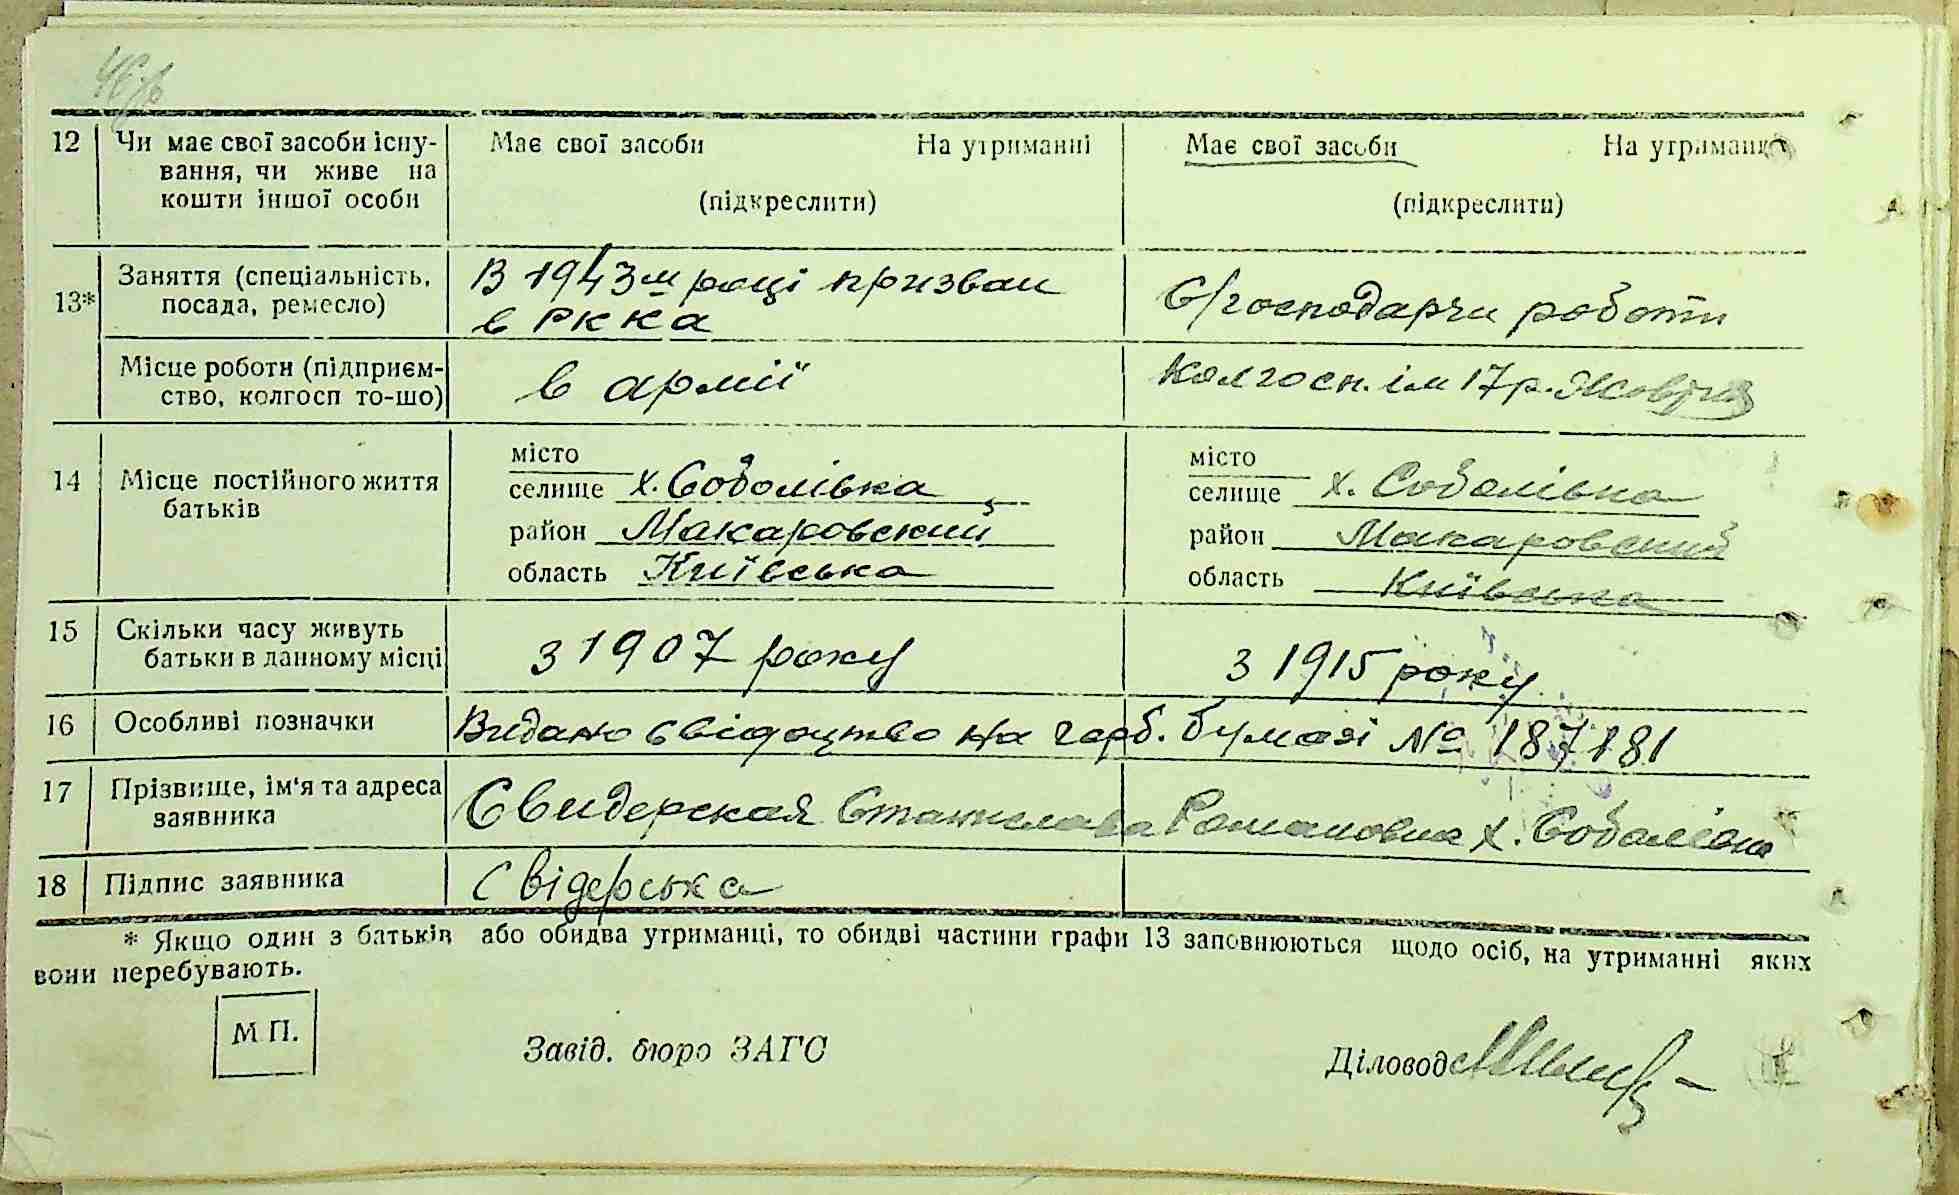 12 Чи має свої засоби існу- Має свої засоби На утриманні Має свої засоби На утриманні
вання, чи живе на
кошти іншої особи (підкреслити) (підкреслити)
13* Заняття (спеціальність, В 1943 м році призван С/господарчи роботи
посада, ремесло) в РККА
Місце роботи (підприєм- в армії Колгосп. ім 17 р. Жовтня
ство, колгосп то-що)
14 Місце постійного життя місто місто
батьків селище х. Соболівка селище х. Соболівка
район Макаровский район Макаровский
область Київська область Київська
15 Скільки часу живуть з 1907 року з 1915 року
батьки в данному місці
16 Особливі позначки Видано свідоцтво на герб. бумазі № 187181
17 Прізвище, ім'я та адреса Свидерская Станислава Романовна х. Соболівка
заявника
18 Підпис заявника Свідерська
* Якщо один з батьків або обидва утриманці, то обидві частини графи 13 заповнюються щодо осіб, на утриманні яких
вони перебувають.
М П.
Завід. бюро ЗАГС Діловод